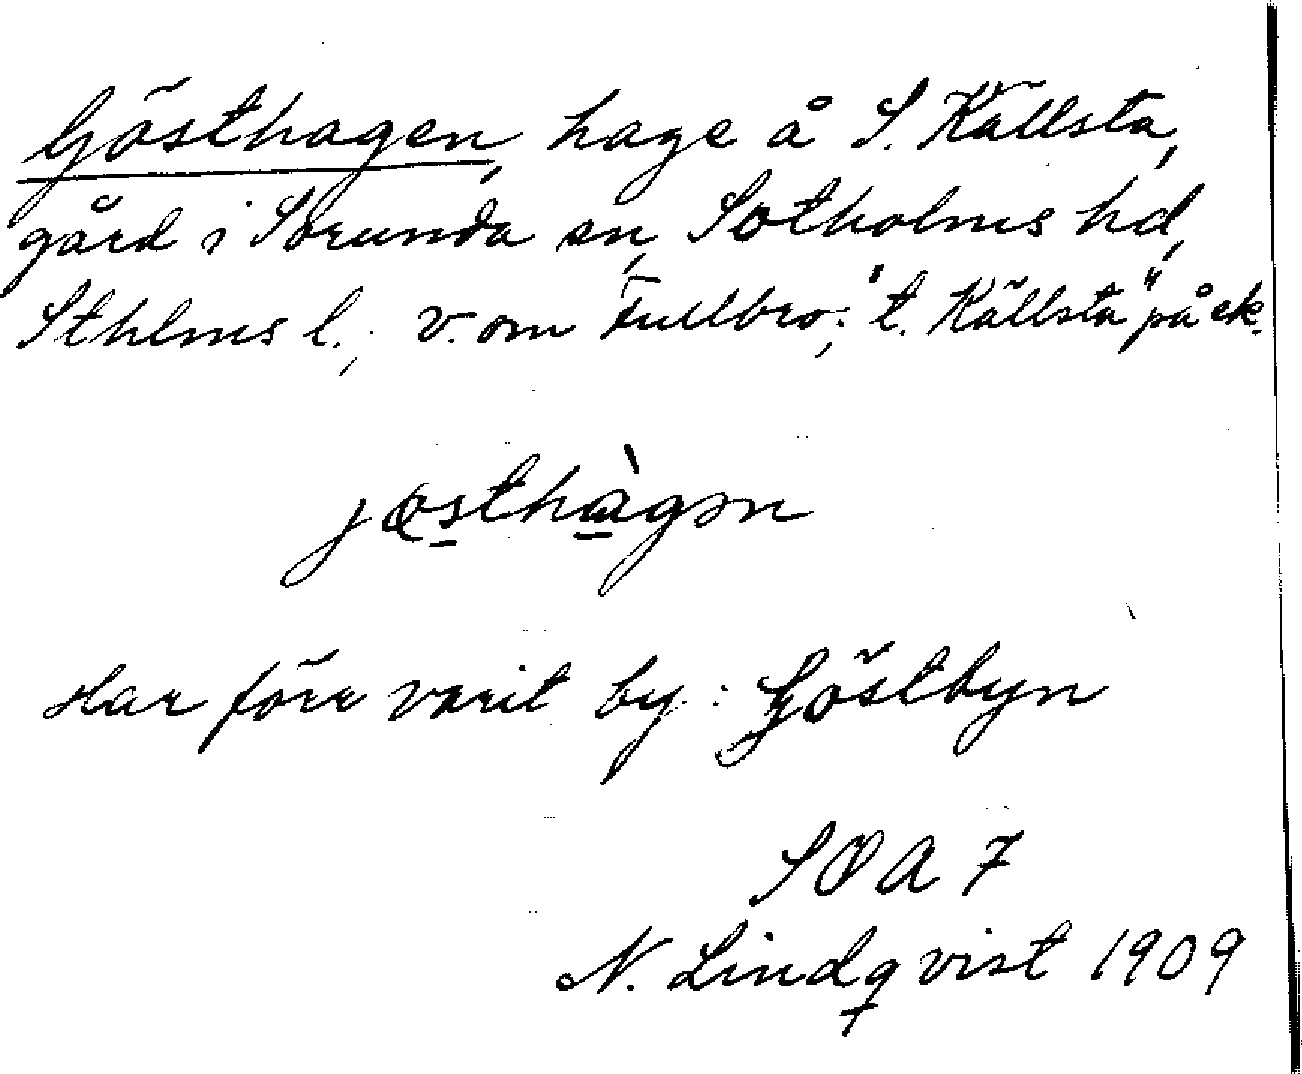 Gösthagen, hage å S. Källsta,
gård i Sorunda sn, Sotholms hd,
Sthlms l.; v. om Fullbro; "t. Källsta" på ek.
jøsthàgən
Har förr varit by: Göstbyn
SOA 7
N. Lindqvist 1909